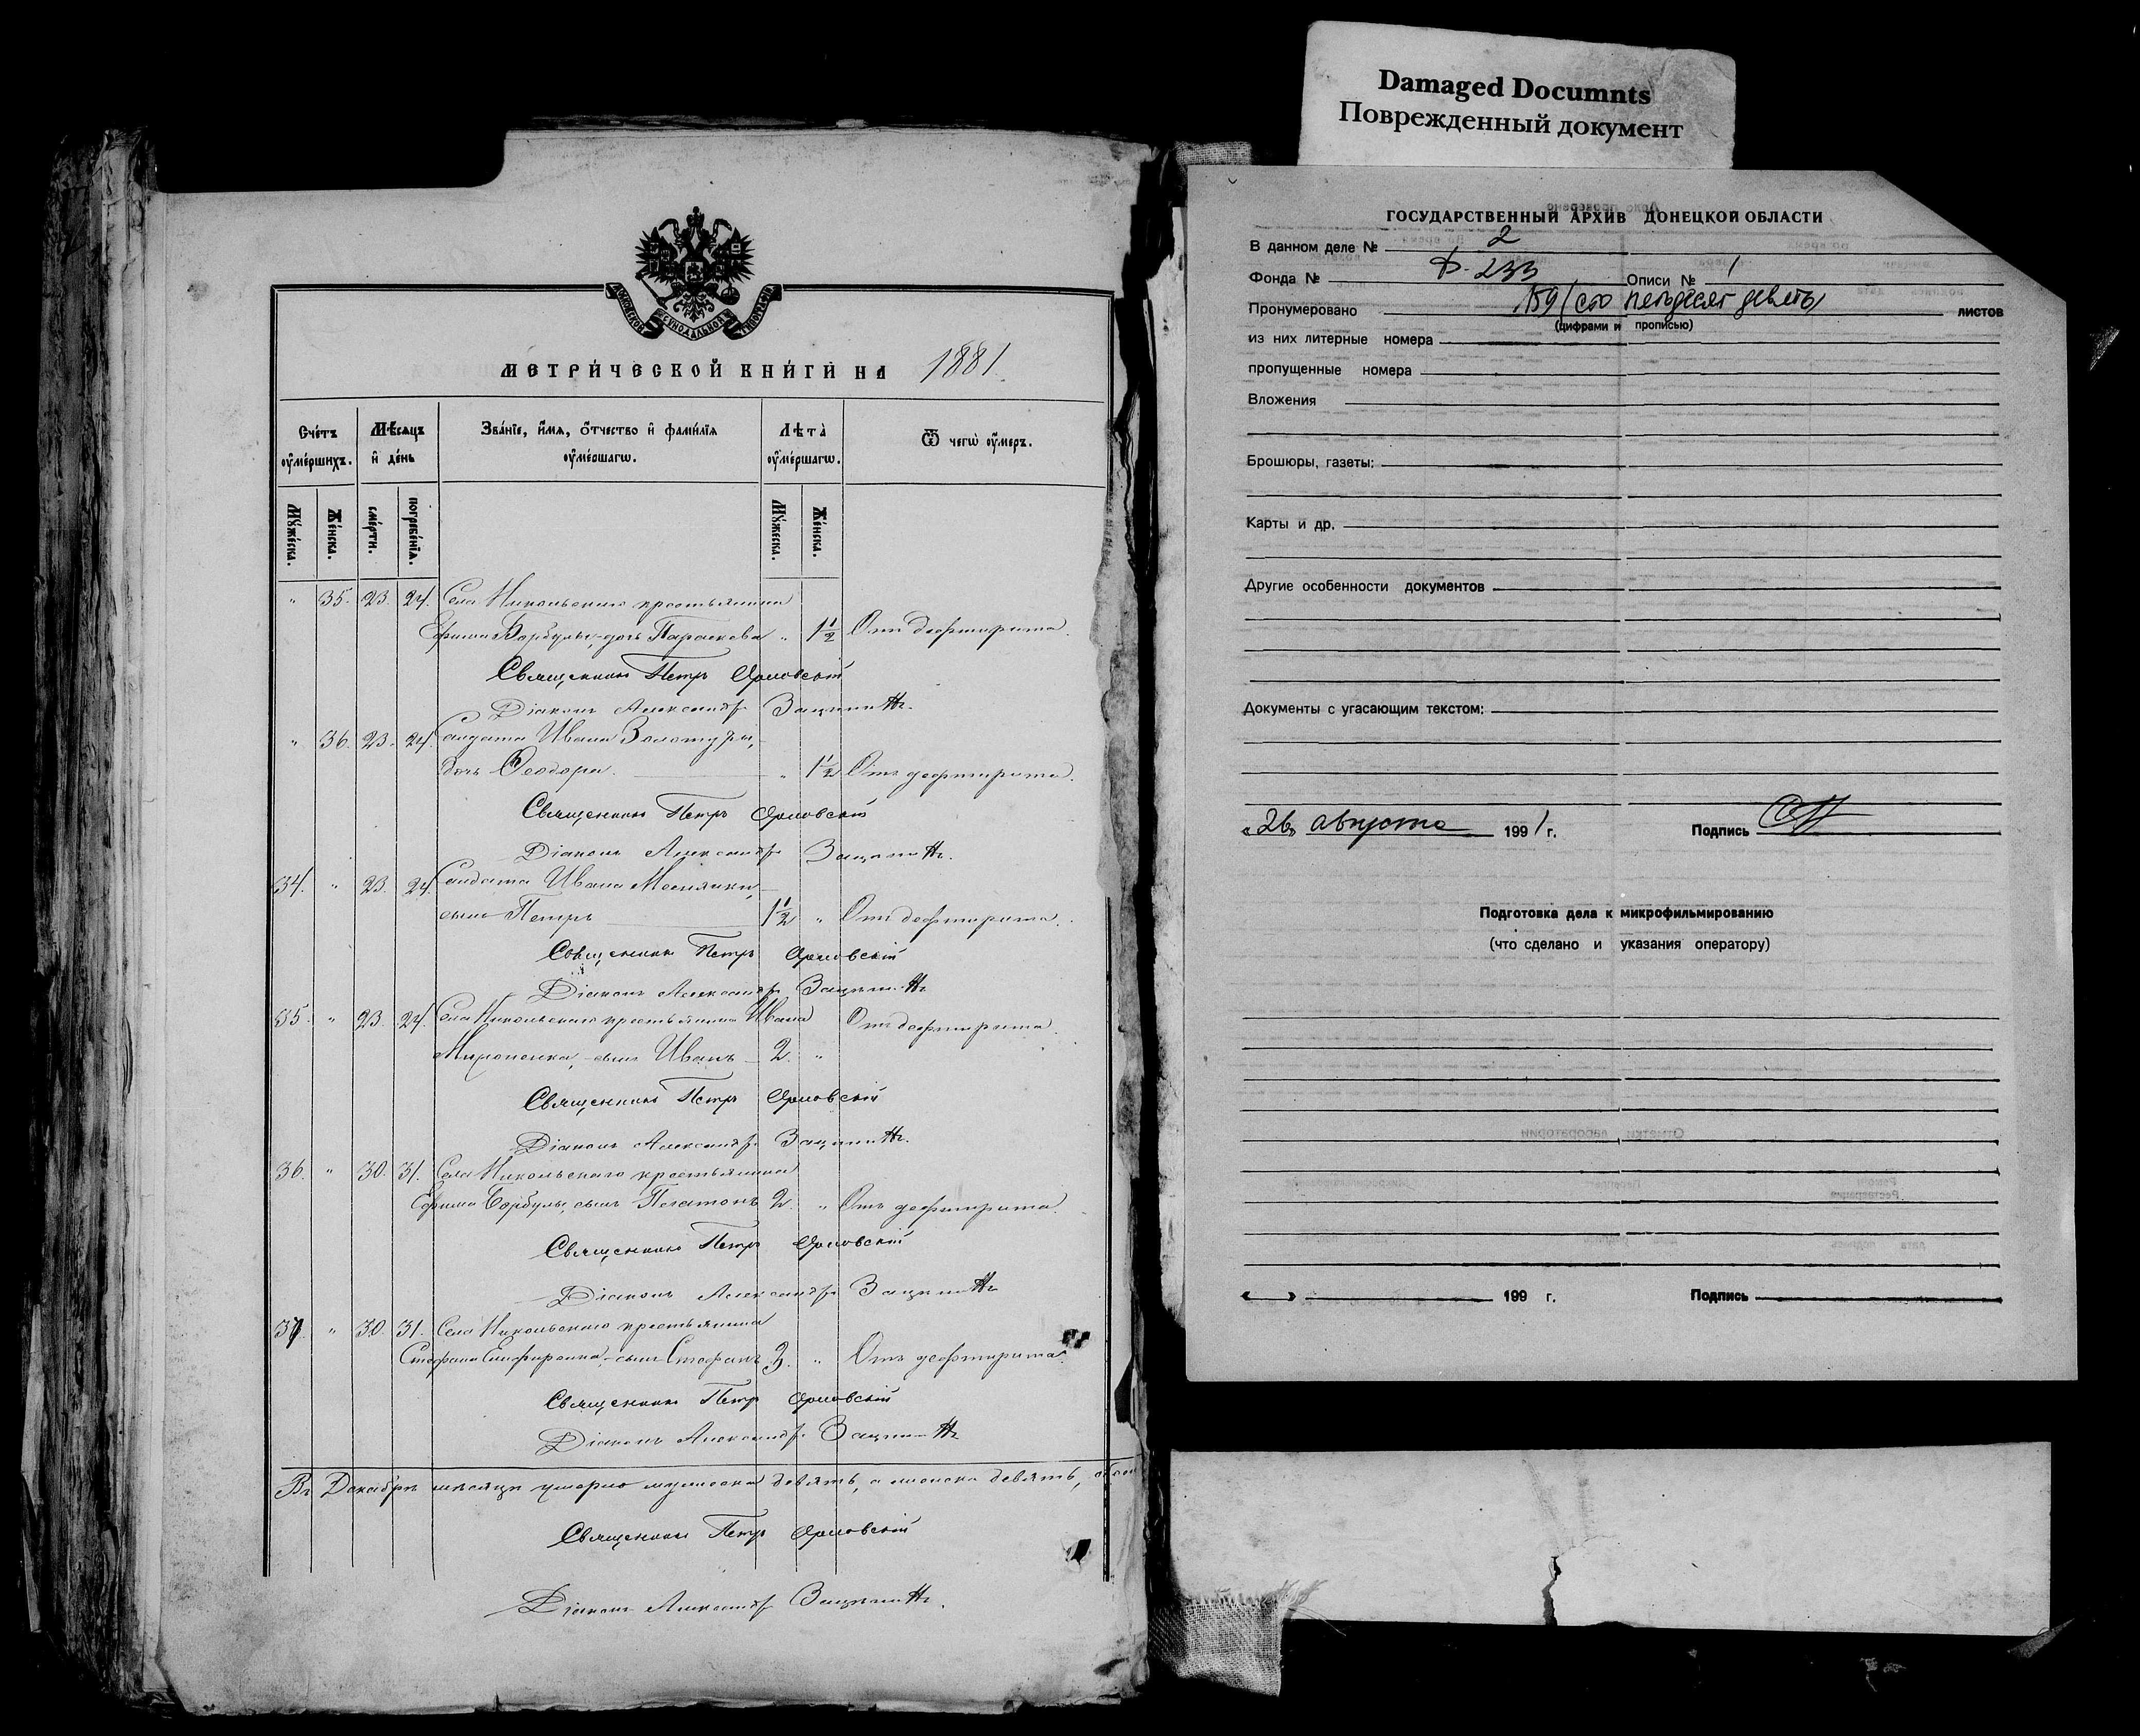 Damaged Documnts
Поврежденный документ
МОСКОВСКОЙ СѴНОДАЛЬНОЙ ТИПОГРАФІИ
МЕТРИ́ЧЕСКОЙ КНИ́ГИ НА 1881.
Сче́тъ ᲂу҆ме́ршихъ.
Мѣ́сяцъ и҆ де́нь
Зва́нїе, и҆́мѧ, ѻ҆́тчество и҆ фами́лїѧ ᲂу҆ме́ршагѡ.
Лѣта̀ ᲂу҆ме́ршагѡ.
Ѿ чегѡ̀ ᲂу҆́меръ.
Мꙋ́жеска.
Же́нска.
сме́рти.
погребе́нїѧ.
Мꙋ́жеска.
Же́нска.
" 35. 23. 24. Села Никольскаго крестьянина
Ефима Борбулы, дочь Параскева " 1½ Отъ дефтирита.
Священникъ Петръ Орловскій
Діаконъ Александръ
" 36. 23. 24. Солдата Ивана
дочь Ѳеодора. " 1½ Отъ дефтирита.
Священникъ Петръ Орловскій
Діаконъ Александръ
34. " 23. 24. Солдата Ивана
сынъ Петръ 1½ " Отъ дефтирита.
Священникъ Петръ Орловскій
Діаконъ Александръ
35. " 23. 24. Села Никольскаго крестьянина Ивана Отъ дефтирита.
Мироненка, сынъ Иванъ 2. "
Священникъ Петръ Орловскій
Діаконъ Александръ
36. " 30. 31. Села Никольскаго крестьянина
Ефима Борбулы, сынъ Платонъ 2. " Отъ дефтирита.
Священникъ Петръ Орловскій
Діаконъ Александръ
37. " 30. 31. Села Никольскаго крестьянина
Стефана сынъ Стефанъ 3. " Отъ дефтирита.
Священникъ Петръ Орловскій
Діаконъ Александръ
Въ Декабрѣ мѣсяцѣ умерло мужеска девять, а женска девять,
Священникъ Петръ Орловскій
Діаконъ Александръ
ГОСУДАРСТВЕННЫЙ АРХИВ ДОНЕЦКОЙ ОБЛАСТИ
В данном деле № 2
Фонда № Ф-233 Описи № 1
Пронумеровано 159 (сто пятьдесят девять) листов
(цифрами и прописью)
из них литерные номера
пропущенные номера
Вложения
Брошюры, газеты:
Карты и др.
Другие особенности документов
Документы с угасающим текстом:
«26» августа 1991 г. Подпись
Подготовка дела к микрофильмированию
(что сделано и указания оператору)
« » 199 г. Подпись